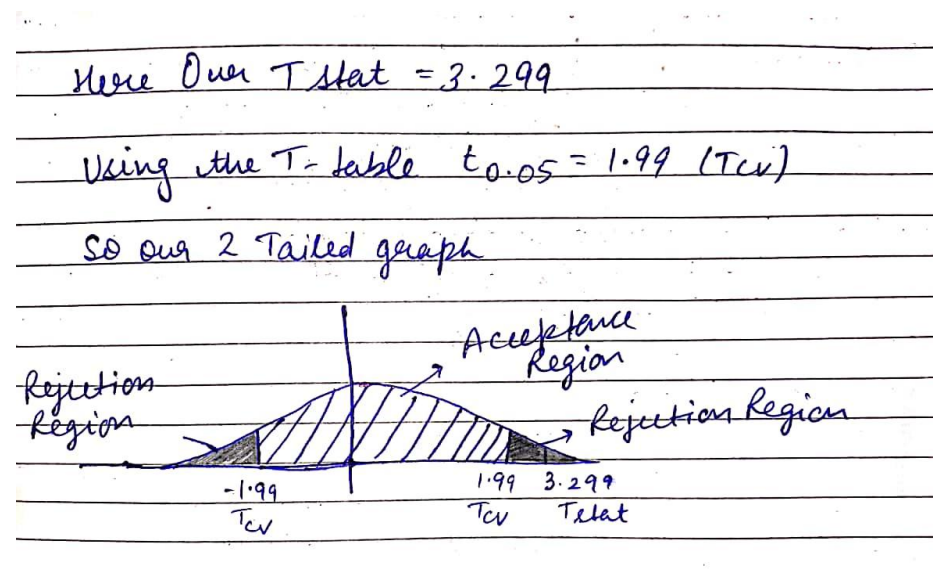 Here Our T stat = 3.299
Using the T-table t0.05 = 1.99 (Tcv)
So our 2 Tailed graph
Acceptance
Region
Rejection
Region
Rejection Region
-1.99
Tcv
1.99
Tcv
3.299
Tstat